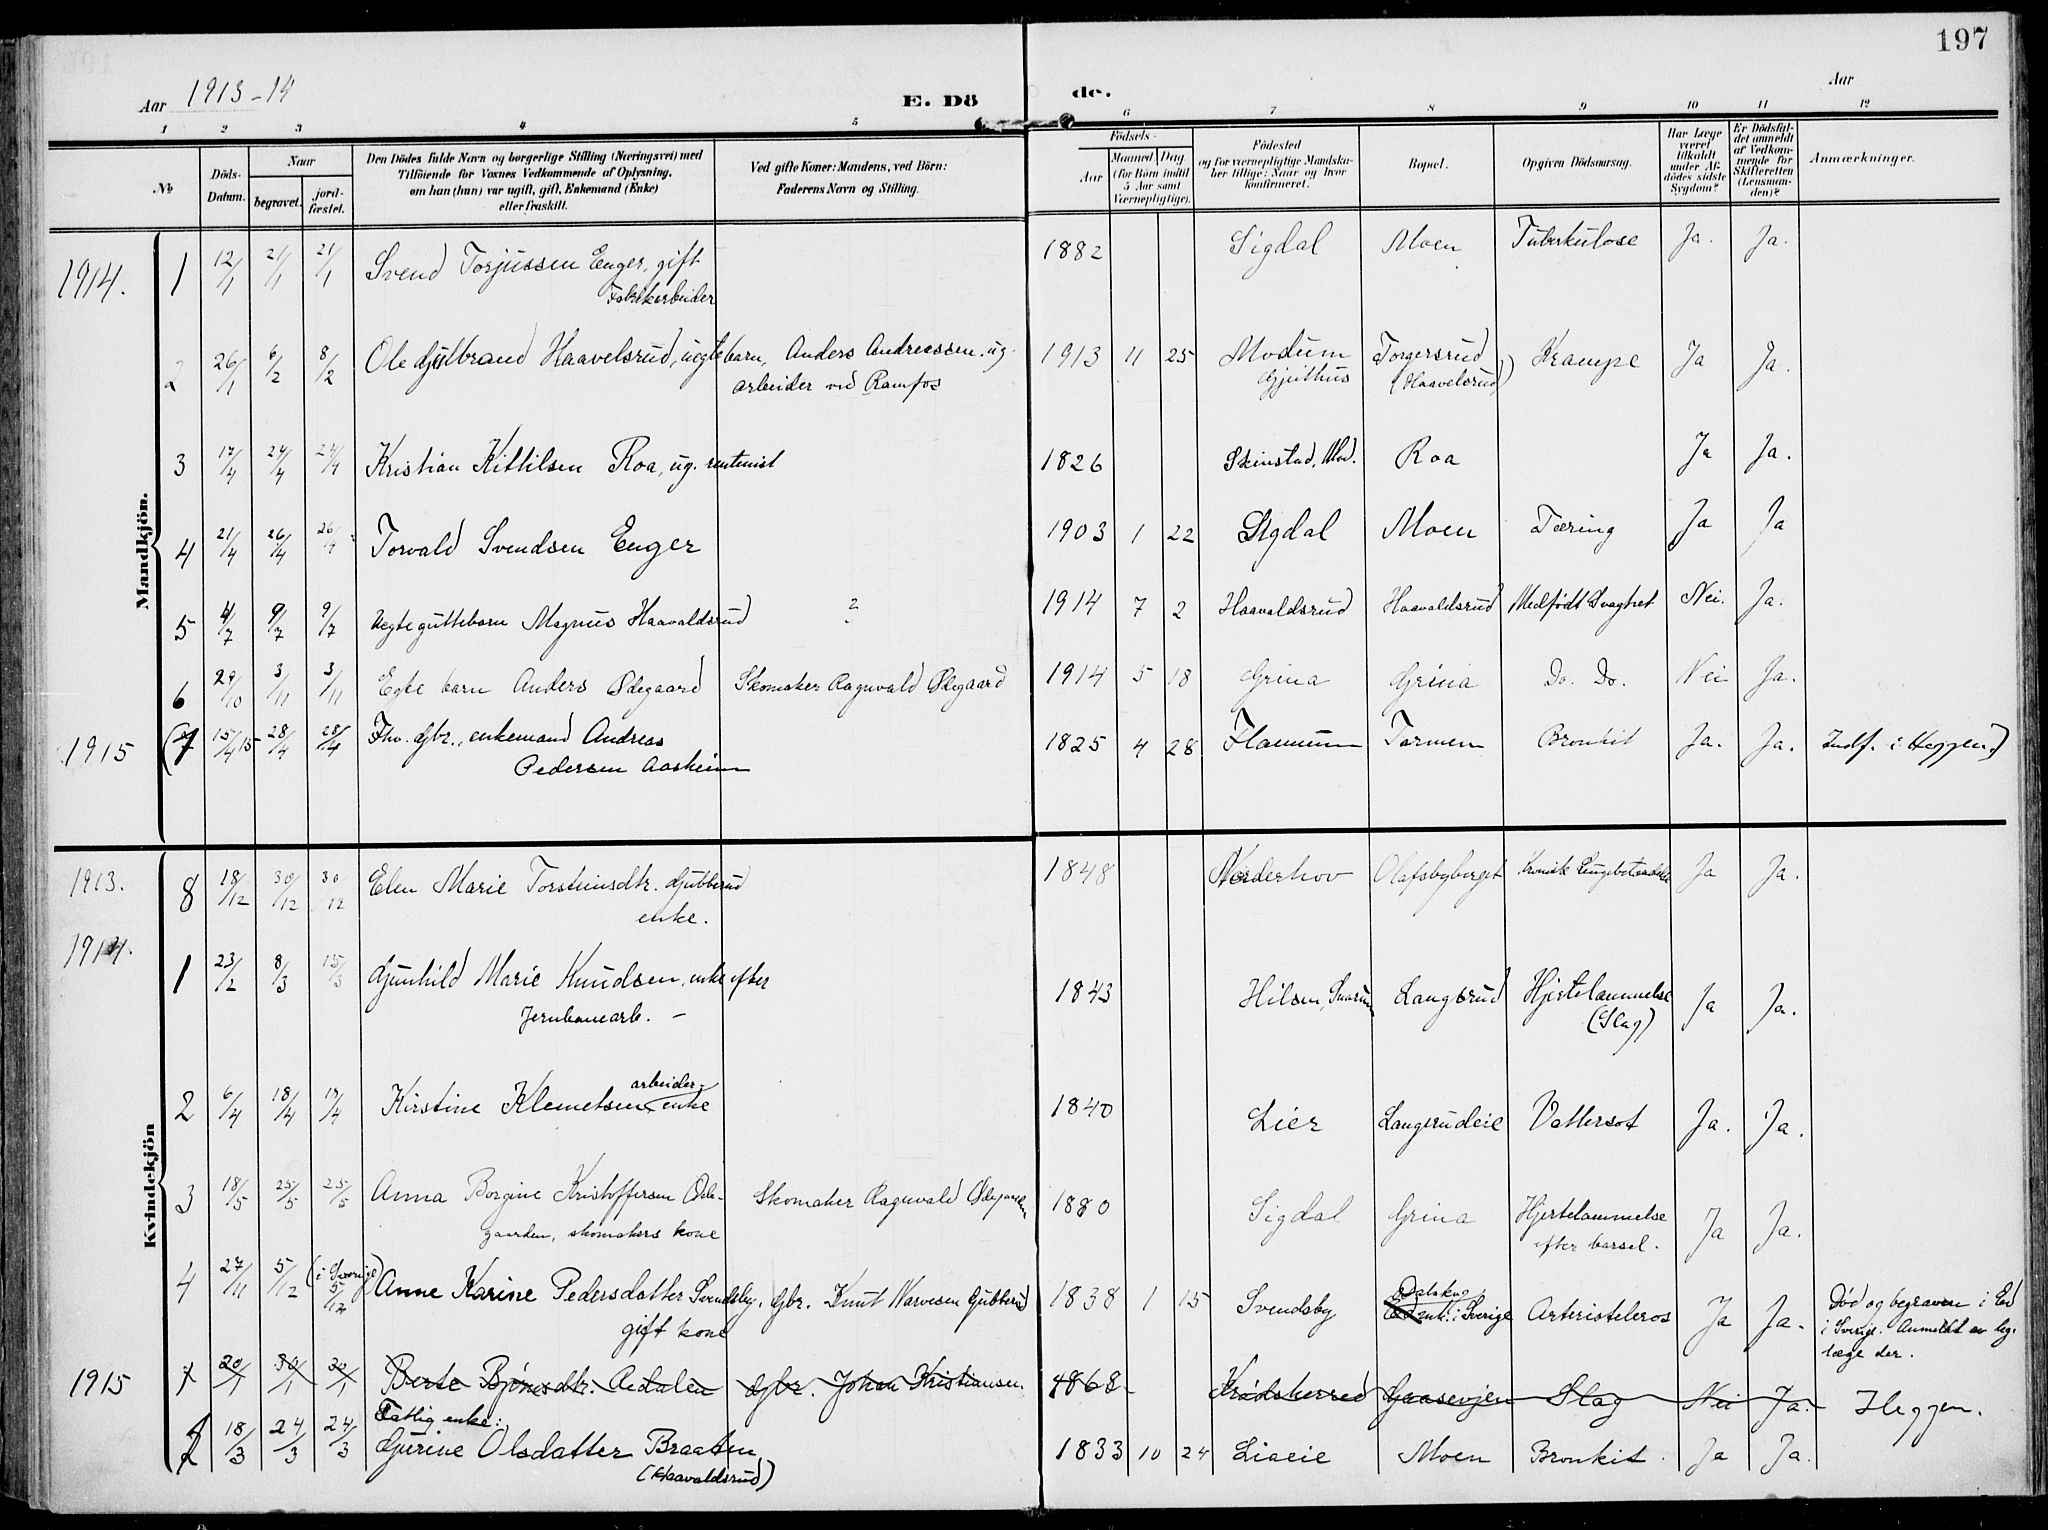 197
Aar 1913-14 E. Dö de. Aar
1 2 3 4 5 6 7 8 9 10 11 12
No. Döds-Datum. Naar begravet. jordfæstet. Den Dödes fulde Navn og borgerlige Stilling (Næringsvei) med Tilföiende for Voxnes Vedkommende af Oplysning. om han (hun) var ugift, gift, Enkemand (Enke) eller fraskilt. Ved gifte Koner: Mandens, ved Börn: Faderens Navn og Stilling. Födsels- Aar Maaned Dag (for Börn indtil 5 Aar samt Værnepligtige). Födested og for værnepligtige Mandskaber tillige: Naar og hvor konfirmeret. Bopæl. Opgiven Dödsaarsag. Har Læge været tilkaldt under Afdödes sidste Sygdom? Er Dödsfaldet anmeldt af Vedkommende for Skifteretten (Lensmanden)? Anmærkninger.
Mandkjön.
1914. 1 12/1 21/1 21/1 Svend Torjussen Enger, gift 1882 Sigdal Moen Tuberkulose Ja. Ja.
Fabrikarbeider
2 26/1 6/2 8/2 Ole Gulbrand Haavelsrud, uegte barn, Anders Andreassen, ug. 1913 11 25 Modum Torgersrud Krampe Ja Ja.
arbeider ved Ramfos Gjeithus (Haavelsrud)
3 17/4 24/4 24/4 Kristian Kittilsen Roa, ug. rentenist 1826 Skinstad, Mod. Roa Ja Ja.
4 21/4 26/4 26/4 Torvald Svendsen Enger 1903 1 22 Sigdal Moen Tæring Ja Ja
5 4/7 9/7 9/7 Uegte guttebarn Magnus Haavaldsrud ? 1914 7 2 Haavaldsrud Haavaldsrud Medfødt Svaghet Nei. Ja.
6 29/10 3/11 3/11 Egte barn Anders Ødegaard Skomaker Ragnvald Ødegaard 1914 5 18 Grina Grina Do. Do. Nei Ja.
1915 (7 15/4 15 28/4 28/4 Fhv. Gbr., enkemand Andreas 1825 4 28 Flannum Tormen Bronkit Ja. Ja. Indf. i Heggen)
Pedersen Aasheim
Kvindekjön
1913. 8 18/12 30/12 30/12 Elen Marie Torsteinsdtr. Gubberud 1848 Norderhov Olafsbyberget Kronisk Lungebetændelse Ja Ja.
enke.
1914. 1 23/2 8/3 15/3 Gunhild Marie Knudsen, enke efter 1843 Hilsen, Snarum Langsrud Hjertelammelse Ja Ja.
Jernbanearb. - (Slag)
2 6/4 18/4 19/4 Kirstine Klemetsen arbeider-enke 1840 Lier Langsrudeie Vattersot Ja. Ja.
3 18/5 25/5 25/5 Anna Borgine Kristoffersen Øde- Skomaker Ragnvald Ødegaarden 1880 Sigdal Grina Hjertelammelse Ja Ja.
gaarden, skomakers kone efter barsel.
4 27/11 5/12 (i Sverige) 5/12 Anne Karine Pedersdatter Svendsby, Gbr. Knut Narvesen Gubberud 1838 1 15 Svendsby Dalskog i Sverige Arteriosteleros Ja Ja. Død og begraven i Ed
gift kone i Sverige. Anmeldt av leg.
læge der.
1915 1 20/1 30/1 30/1 Berte Bjørnsdtr. Aadalen Gbr. Johan Kristiansen 1868 Krødsherred Gaasevjen Slag Nei Ja. Heggen.
1 18/3 24/3 24/3 Fattig enke: Gurine Olsdatter Braaten 1833 10 24 Liaeie Moen Bronkit. Ja Ja.
(Haavaldsrud)